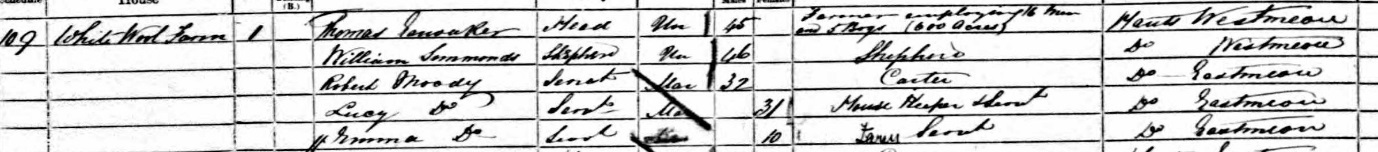 109 White Wool Farm 1 Thomas Head Un 45 Farmer employing 16 Men and 5 Boys (600 Acres) Hants Westmeon
William Simmonds Shepherd Un 46 Shepherd Do Westmeon
Robert Moody Servt Mar 32 Carter Do Eastmeon
Lucy Do Servt Mar 31 House Keeper Servt Do Eastmeon
Emma Do Servt 10 Farm Servt Do Eastmeon